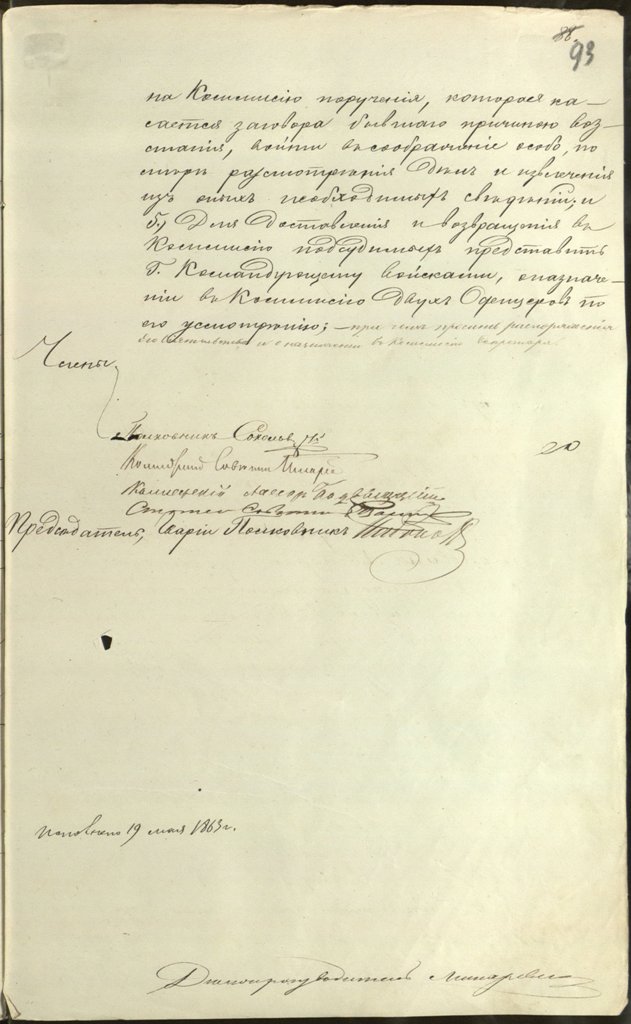 88.
93
на Коммисію порученія, которое ка-
сается заговора бывшаго причиною воз-
станія, войти въ соображеніе особо, по
мѣрѣ разсмотрѣнія Дѣлъ и извлеченія
изъ оныхъ необходимыхъ свѣдѣній; и
5.) Для Доставленія и возвращенія въ
Коммисію подсудимыхъ представить
Г. Командующему войсками, о назначе-
ніи въ Коммисію двухъ Офицеровъ по
его усмотрѣнію; – при чемъ просить распоряженія
его Сіятельства и о назначеніи въ Коммисію Секретаря.
Члены
Полковникъ Соколовъ
Коллежскій Совѣтникъ
Коллежскій Ассесоръ
Предсѣдатель, Полковникъ
19 мая 1863 г.
Дѣлопроизводитель